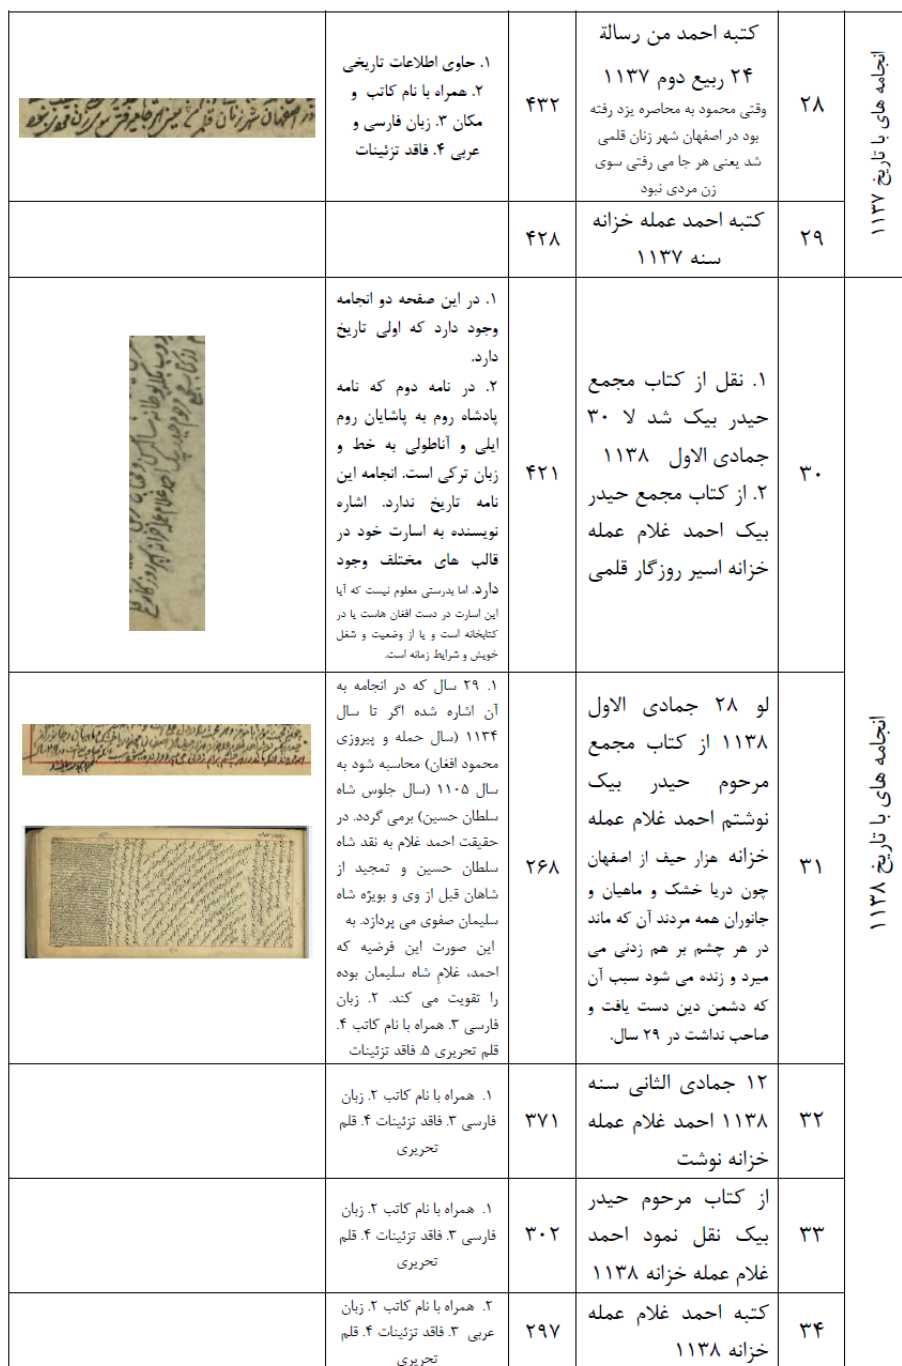 انجامه های با تاریخ ۱۱۳۷
۲۸
کتبه احمد من رسالة
۲۴ ربیع دوم ۱۱۳۷
وقتی محمود به محاصره یزد رفته
بود در اصفهان شهر زنان قلمی
شد یعنی هر جا می رفتی سوی
زن مردی نبود
۴۳۲
۱. حاوی اطلاعات تاریخی
۲. همراه با نام کاتب و
مکان ۳. زبان فارسی و
عربی ۴. فاقد تزئینات
۲۹
کتبه احمد عمله خزانه
سنه ۱۱۳۷
۴۲۸
انجامه های با تاریخ ۱۱۳۸
۳۰
۱. نقل از کتاب مجمع
حیدر بیک شد لا ۳۰
جمادی الاول ۱۱۳۸
۲. از کتاب مجمع حیدر
بیک احمد غلام عمله
خزانه اسیر روزگار قلمی
۴۲۱
۱. در این صفحه دو انجامه
وجود دارد که اولی تاریخ
دارد.
۲. در نامه دوم که نامه
پادشاه روم به پاشایان روم
ایلی و آناطولی به خط و
زبان ترکی است. انجامه این
نامه تاریخ ندارد. اشاره
نویسنده به اسارت خود در
قالب های مختلف وجود
دارد. اما بدرستی معلوم نیست که آیا
این اسارت در دست افغان هاست یا در
کتابخانه است و یا از وضعیت و شغل
خویش و شرایط زمانه است.
۳۱
لو ۲۸ جمادی الاول
۱۱۳۸ از کتاب مجمع
مرحوم حیدر بیک
نوشتم احمد غلام عمله
خزانه هزار حیف از اصفهان
چون دریا خشک و ماهیان و
جانوران همه مردند آن که ماند
در هر چشم بر هم زدنی می
میرد و زنده می شود سبب آن
که دشمن دین دست یافت و
صاحب نداشت در ۲۹ سال.
۲۶۸
۱. ۲۹ سال که در انجامه به
آن اشاره شده اگر تا سال
۱۱۳۴ (سال حمله و پیروزی
محمود افغان) محاسبه شود به
سال ۱۱۰۵ (سال جلوس شاه
سلطان حسین) برمی گردد. در
حقیقت احمد غلام به نقد شاه
سلطان حسین و تمجید از
شاهان قبل از وی و بویژه شاه
سلیمان صفوی می پردازد. به
این صورت این فرضیه که
احمد، غلامِ شاه سلیمان بوده
را تقویت می کند. ۲. زبان
فارسی ۳. همراه با نام کاتب ۴.
قلم تحریری ۵. فاقد تزئینات
۳۲
۱۲ جمادی الثانی سنه
۱۱۳۸ احمد غلام عمله
خزانه نوشت
۳۷۱
۱. همراه با نام کاتب ۲. زبان
فارسی ۳. فاقد تزئینات ۴. قلم
تحریری
۳۳
از کتاب مرحوم حیدر
بیک نقل نمود احمد
غلام عمله خزانه ۱۱۳۸
۳۰۲
۱. همراه با نام کاتب ۲. زبان
فارسی ۳. فاقد تزئینات ۴. قلم
تحریری
۳۴
کتبه احمد غلام عمله
خزانه ۱۱۳۸
۲۹۷
۲. همراه با نام کاتب ۲. زبان
عربی ۳. فاقد تزئینات ۴. قلم
تحریری